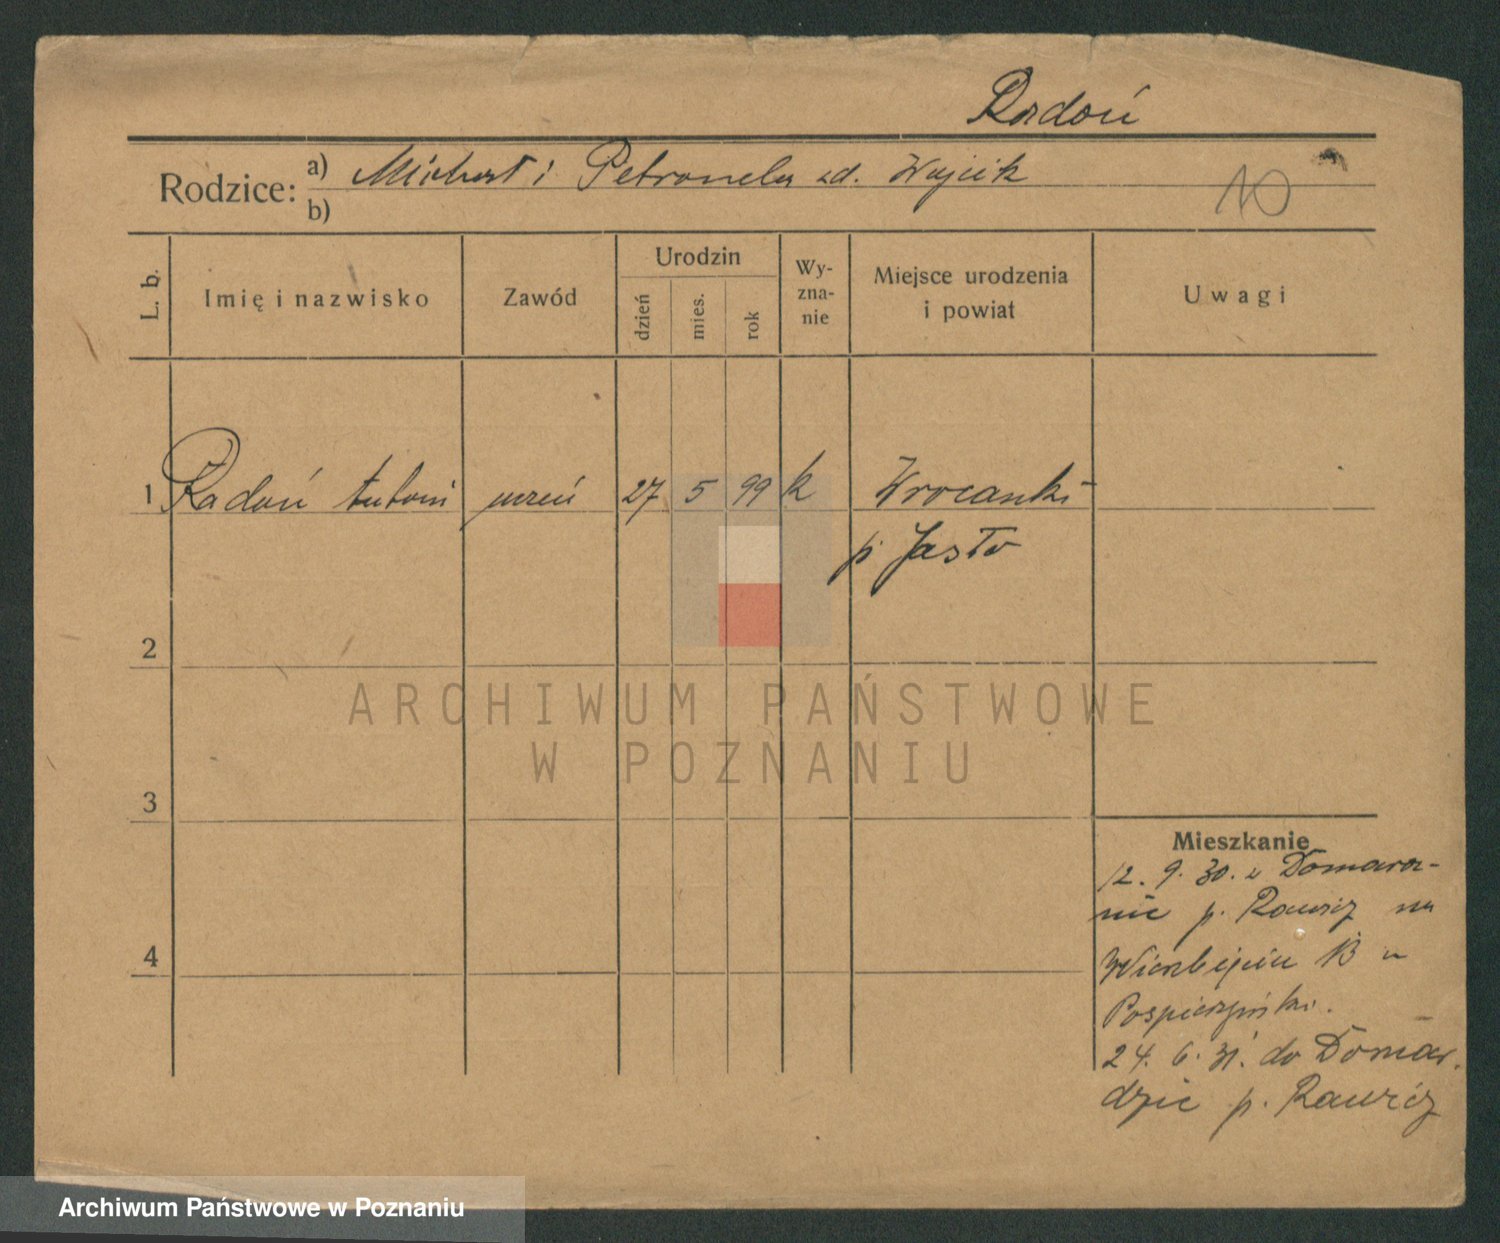 Radoń
Rodzice: a) Michał i Petronela zd. Wujcik
b)
10
L. b. Imię i nazwisko Zawód Urodzin dzień mies. rok Wy-zna-nie Miejsce urodzenia i powiat Uwagi
1 Radoń Antoni uczeń 27 5 99 k Wrocanki
p. Jasło
2
3
4
Mieszkanie
12. 9. 30. z
p. Rawicz na
13 u
24. 6. 31. do Domar.
dzic p. Rawicz
ARCHIWUM PAŃSTWOWE
W POZNANIU
Archiwum Państwowe w Poznaniu